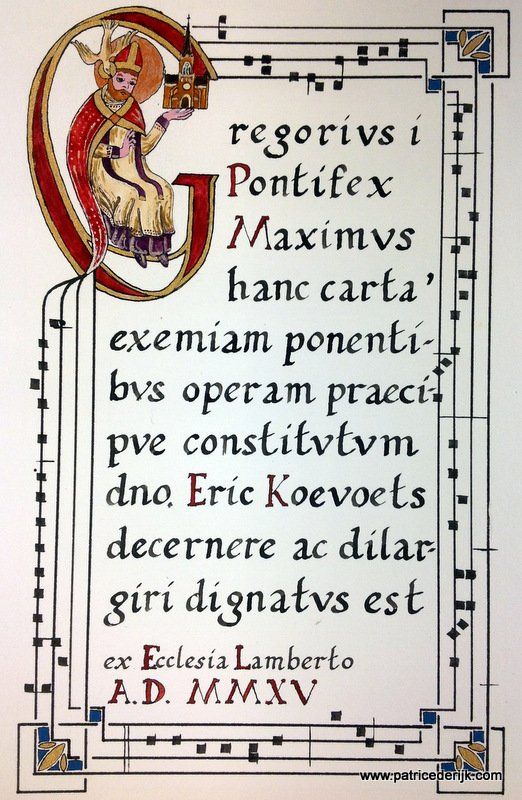 Gregorivs i
Pontifex
Maximvs
hanc carta'
exemiam ponenti-
bvs operam praeci-
pve constitvtvm
dno. Eric Koevoets
decernere ac dilar-
giri dignatvs est
ex Ecclesia Lamberto
A.D. MMXV
www.patricederijk.com